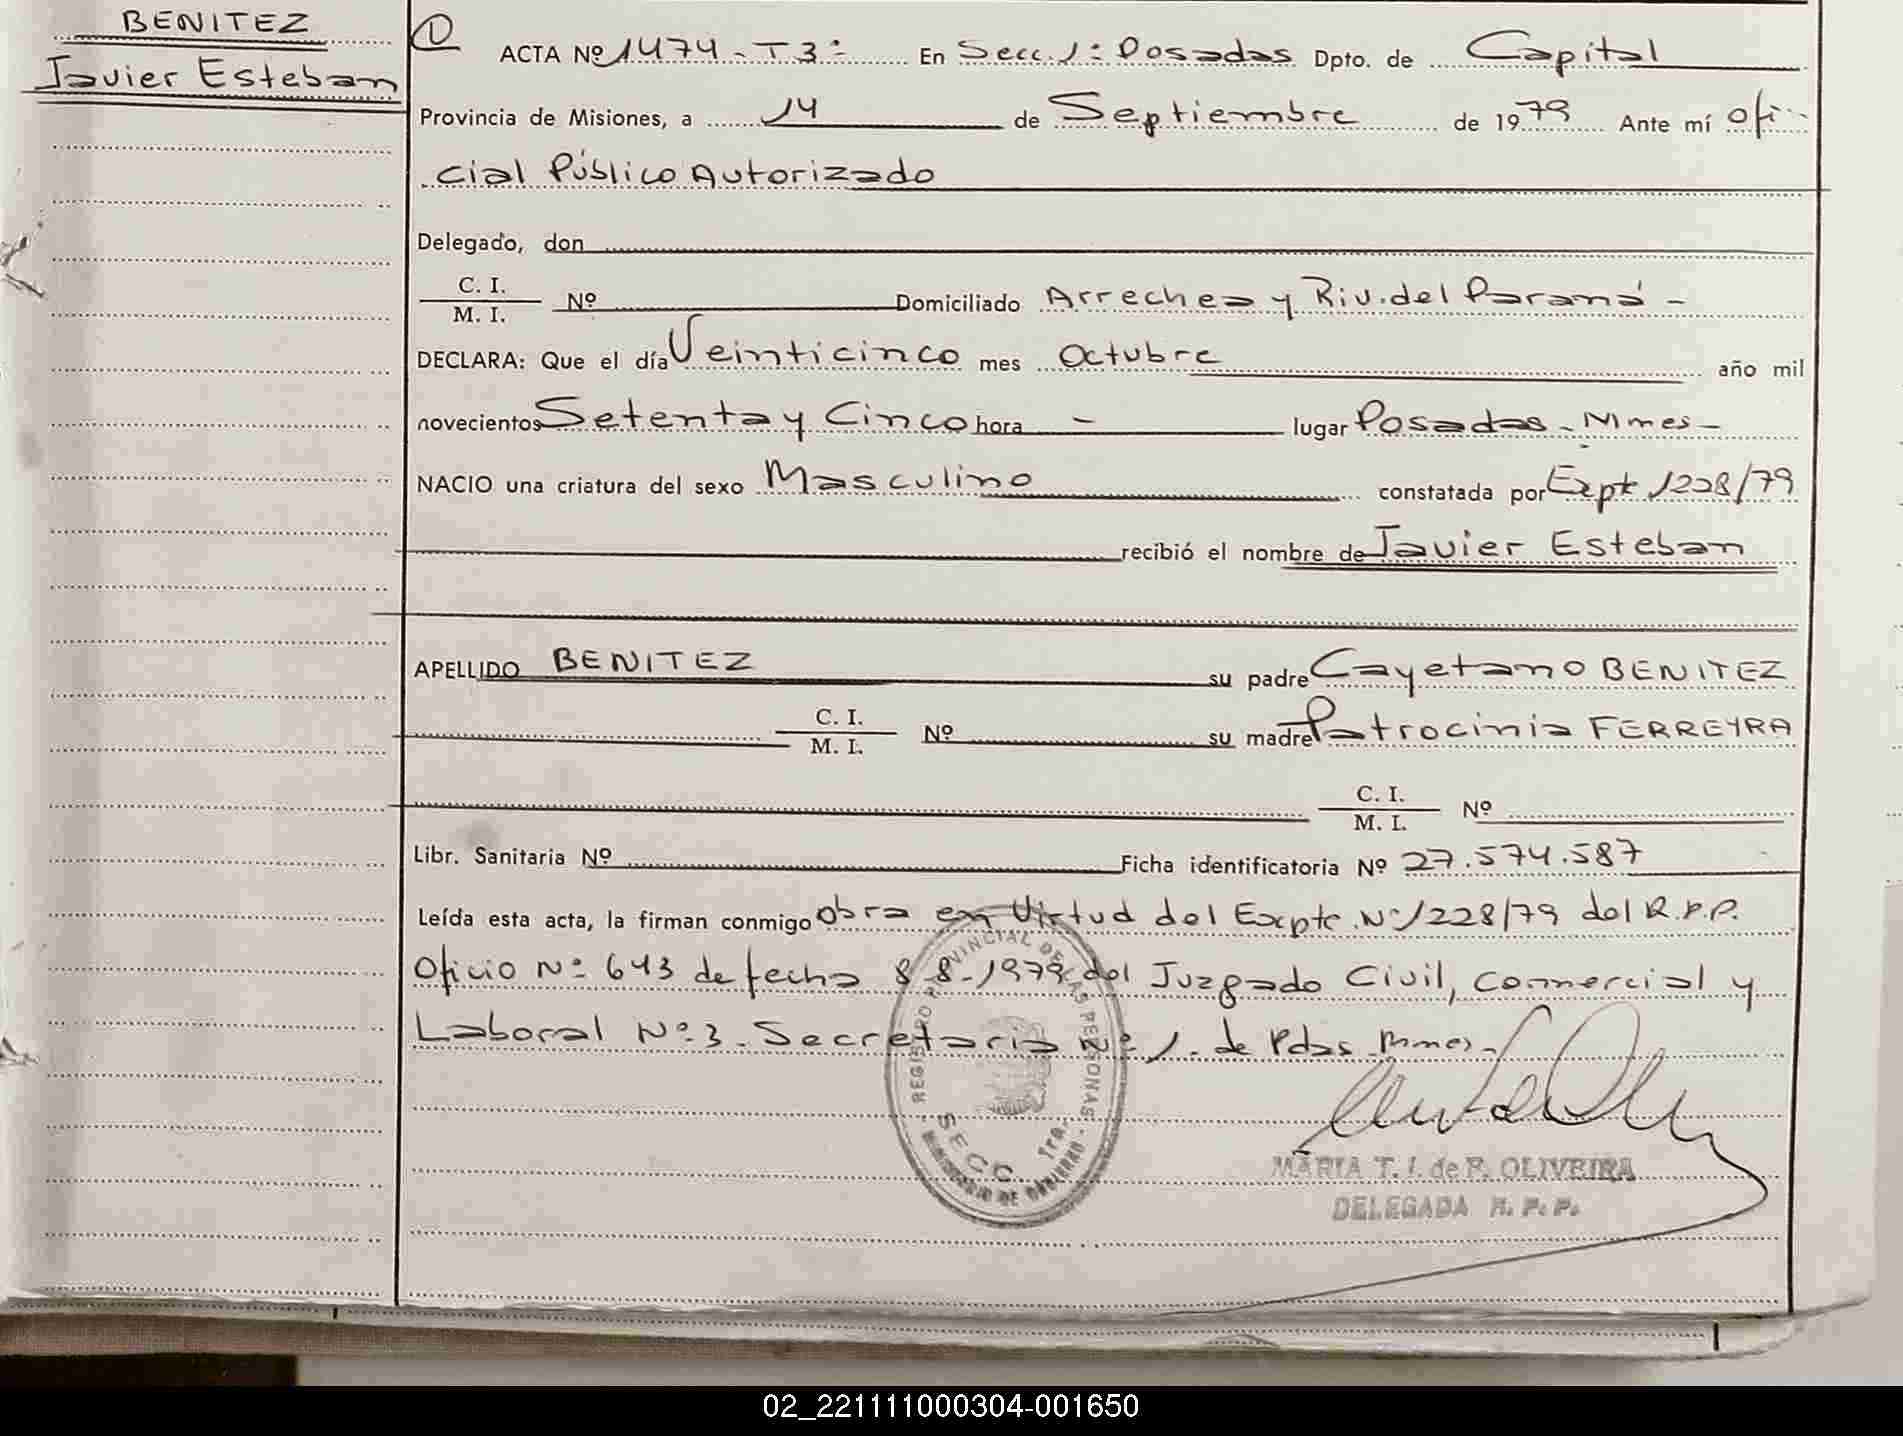 BENITEZ
Javier Esteban
1
ACTA Nº 1474 - T3º En Secc. 1ª Posadas Dpto. de Capital
Provincia de Misiones, a 14 de Septiembre de 1979 Ante mí Ofi-
cial Público Autorizado
Delegado, don
C. I.
M. I. Nº Domiciliado Arrechea y Riv. del Paraná -
DECLARA: Que el día Veinticinco mes Octubre año mil
novecientos Setenta y Cinco hora - lugar Posadas - Mnes -
NACIO una criatura del sexo Masculino constatada por Expte 1228/79
recibió el nombre de Javier Esteban
APELLIDO BENITEZ su padre Cayetano BENITEZ
C. I.
M. I. Nº su madre Patrocinia FERREYRA
C. I.
M. I. Nº
Libr. Sanitaria Nº Ficha identificatoria Nº 27.574.587
Leída esta acta, la firman conmigo obra en Virtud del Expte. Nº 1228/79 del R.P.P.
Oficio Nº 643 de fecha 8-8-1979 del Juzgado Civil, Comercial y
Laboral Nº 3. Secretaria Nº 1. de Pdas. Mnes -
REGISTRO PROVINCIAL DE LAS PERSONAS
SECC. 1ra.
MINISTERIO DE GOBIERNO
MARIA T. I. de R. OLIVEIRA
DELEGADA R. P. P.
02_221111000304-001650